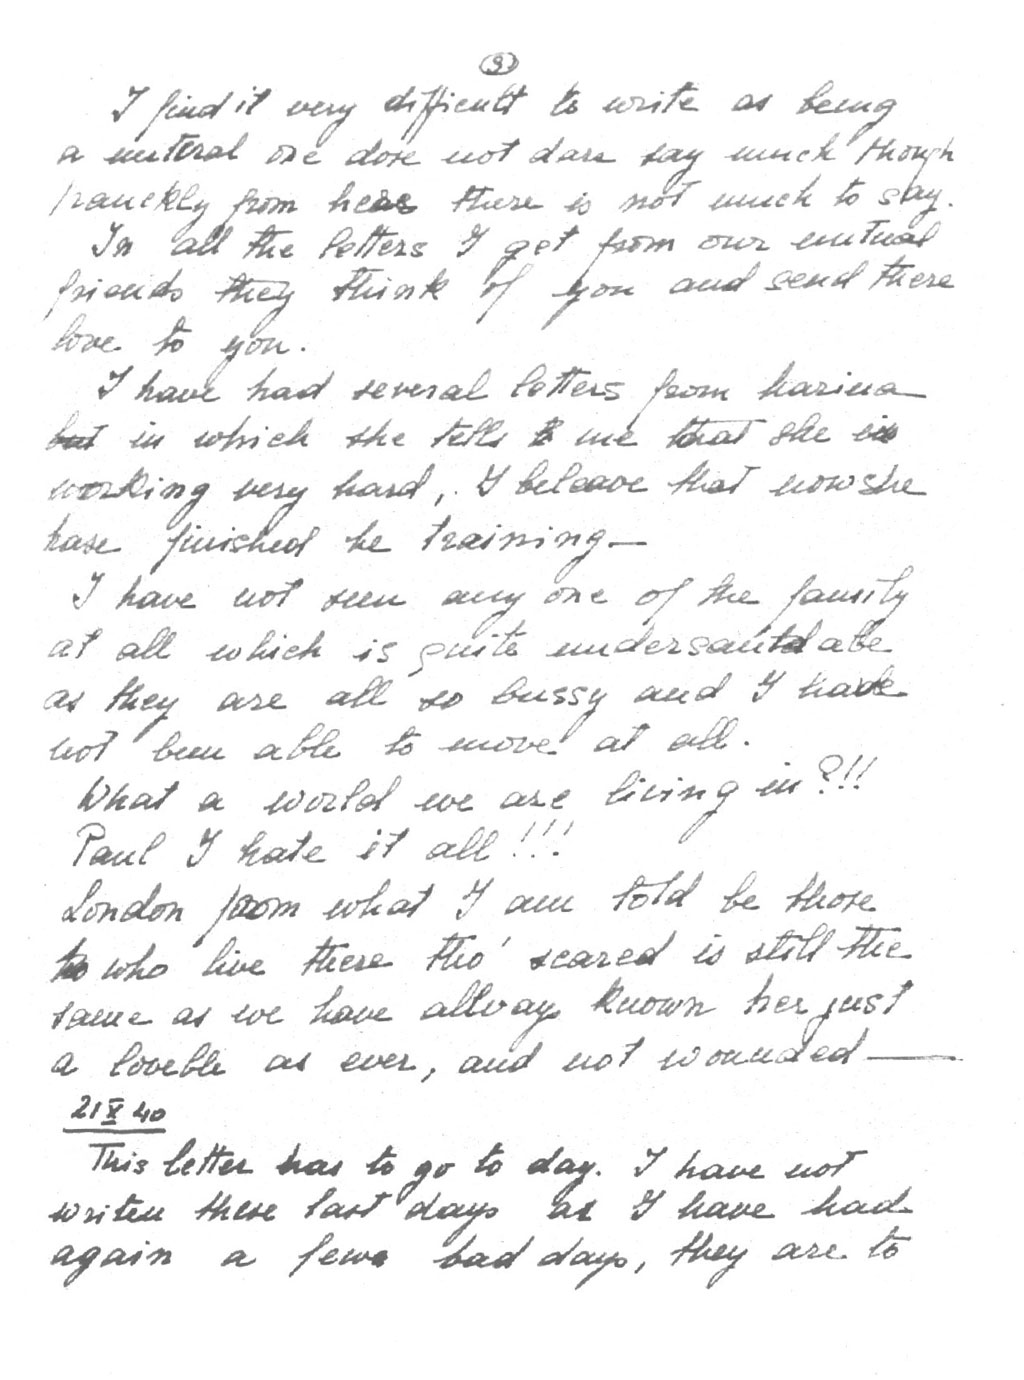 3
I find it very difficult to write as being
a nutéral one dose not dare say much though
franckly from here there is not much to say.
In all the letters I get from our mutual
friends they think of you and send there
love to you.
I have had several letters from Marina
but in which she tells me that she is
working very hard, I beleave that now she
hase finished he training —
I have not seen any one of the family
at all which is quite undersantdable
as they are all so bussy and I have
not been able to move at all.
What a world we are living in?!!
Paul I hate it all!!!
London from what I am told be those
who live there tho' scared is still the
same as we have allways known her just
a loveble as ever, and not wounded —
21 X 40
This letter has to go to day. I have not
writen these last days as I have had
again a fews bad days, they are to